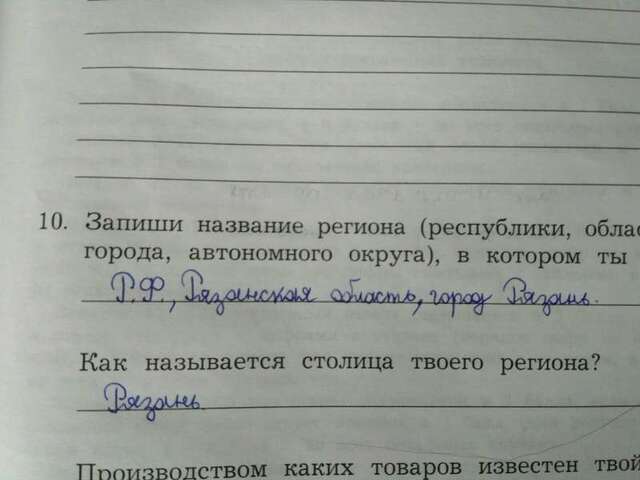 10. Запиши название региона (республики, облас
города, автономного округа), в котором ты
Р.Ф., Рязанская область, город Рязань.
Как называется столица твоего региона?
Рязань
Производством каких товаров известен твой